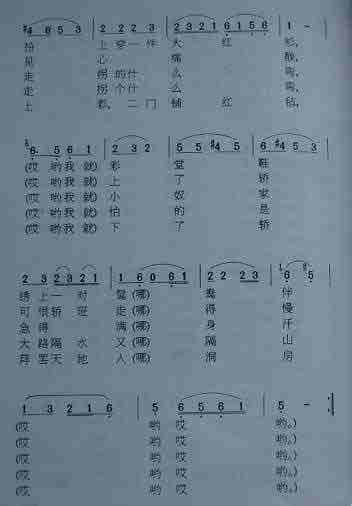 #4 6 5 3 | 2 2 2 3 | 2 3 2 1 6 1 5 6 | 1 -
拾 上穿一件 大 红 衫,
见 心 痛 酸,
走 拐的什 么 弯,
走 拐个什 么 弯,
上 彩,二门 铺 红 毡,
6 5 6 1 | 2 3 2 | 5 5 #4 5 | 6 #4 5 3
(哎 哟我 就)彩 堂 鞋
(哎 哟我 就)上 了 轿
(哎 哟我 就)小 奴 家
(哎 哟我 就)怕 的 是
(哎 哟我 就)下 了 轿
2 2 3 2 1 | 1 0 6 1 | 2 2 2 3 | 6 5
绣上一 对 鸳(哪) 鸯 伴
可恨轿 走(哪) 得 慢
急得 满(哪) 身 汗
大路隔 水 又(哪) 隔 山
拜罢天 地 人(哪) 洞 房
1 3 2 1 6 | 5 6 5 6 1 | 5 - :||
(哎 哟 哎 哟。)
(哎 哟 哎 哟。)
(哎 哟 哎 哟。)
(哎 哟 哎 哟。)
(哎 哟 哎 哟。)